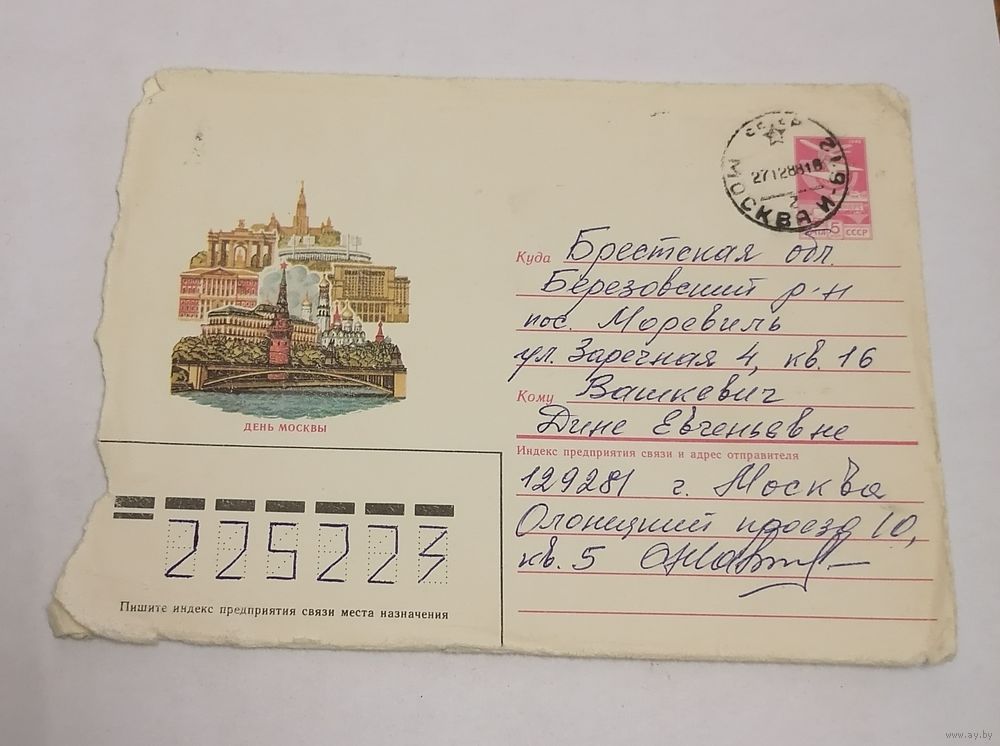 МОСКВА И-612
27128818
2
5
СССР
Куда Брестская обл.
Березовский р-н
пос. Моревиль
ул. Заречная 4, кв. 16
Кому Вашкевич
Дине Евгеньевне
Индекс предприятия связи и адрес отправителя
129281 г. Москва
Олонецкий проезд 10,
кв. 5
ДЕНЬ МОСКВЫ
225223
Пишите индекс предприятия связи места назначения
www.ay.by